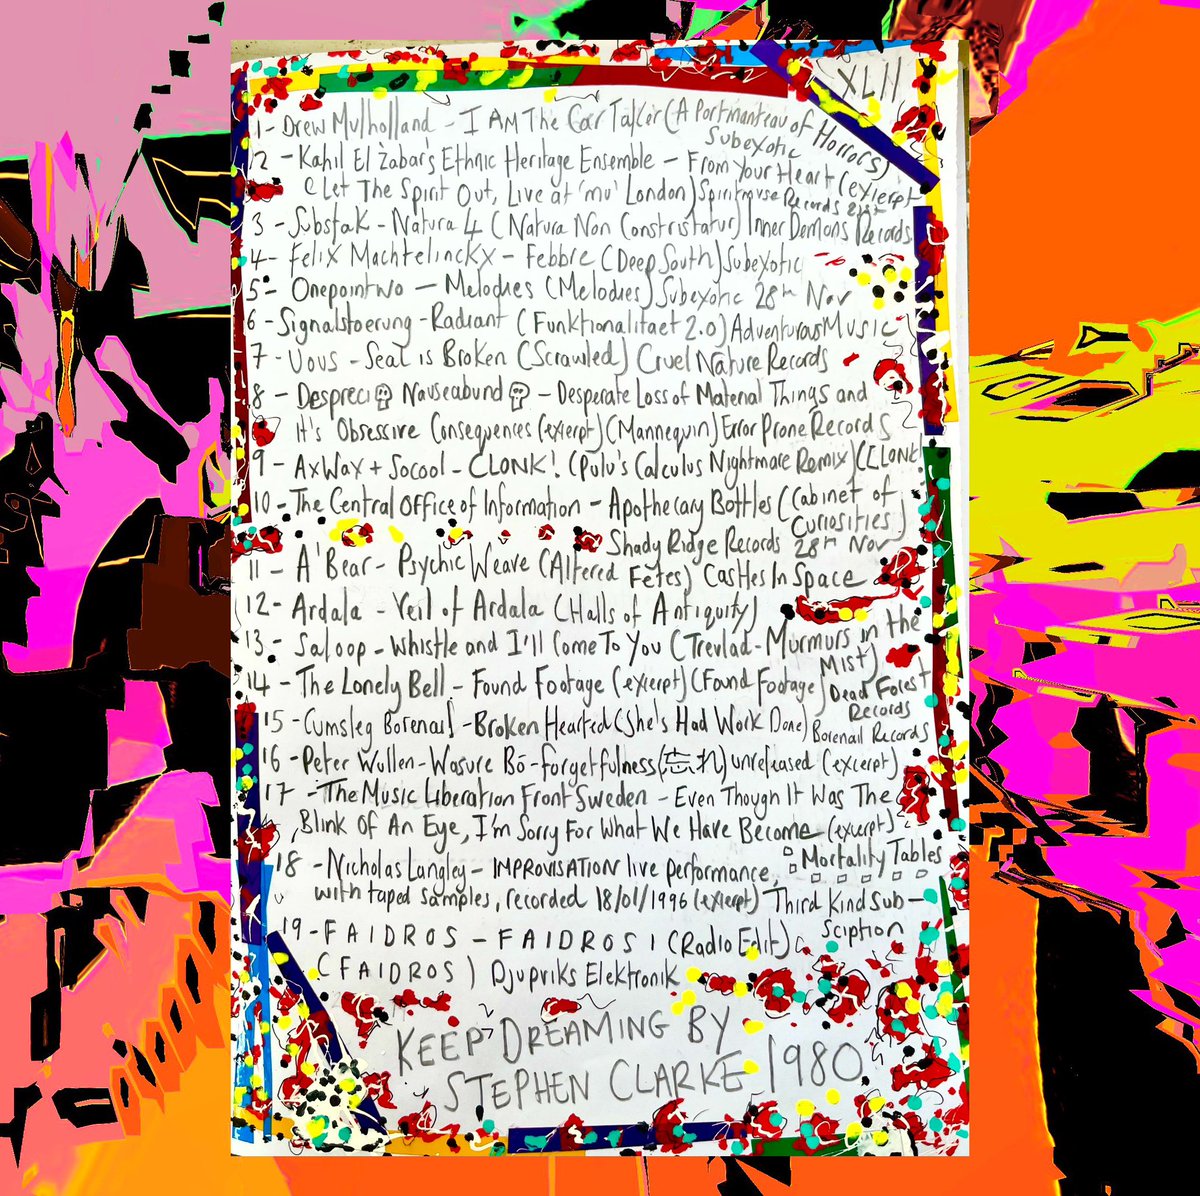 XLII
1 - Drew Mulholland - I AM The Car Tailer (A Portmanteau of Horrors)
Subexotic
2 - Kahil El Zabar's Ethnic Heritage Ensemble - From Your Heart (exierpt
(Let The Spirit Out, Live at 'mu' London) Spiritmuse Records 21st
3 - Substak - Natura 4 (Natura Non Constristatur) Inner Demons Records
4 - Felix Machtelinckx - Febbre (Deep South) Subexotic
5 - Onepointwo - Melodies (Melodies) Subexotic 28th Nov
6 - Signalstoerung - Radiant (Funktionalitaet 2.0) Adventurous Music
7 - Vous - Seal is Broken (Scrawled) Cruel Nature Records
8 - Despreci Nauseabund - Desperate Loss of Material Things and
It's Obsessive Consequences (exierpt) (Mannequin) Error Prone Records
9 - AxWax + Socool - CLONK! (Pulu's Calculus Nightmare Remix) (CLONK!
10 - The Central Office of Information - Apothecary Bottles (Cabinet of
Curiosities)
Shady Ridge Records 28th Nov
11 - A'Bear - Psychic Weave (Altered Fetes) Castles In Space
12 - Ardala - Veil of Ardala (Halls of Antiquity)
13 - Saloop - Whistle and I'll Come To You (Trevlad - Murmurs in the
Mist)
14 - The Lonely Bell - Found Footage (exierpt) (Found Footage) Dead Forest
Records
15 - Cumsleg Borenail - Broken Hearted (She's Had Work Done) Borenail Records
16 - Peter Wullen - Wasure Bō - forgetfulness (忘れ) unreleased (excerpt)
17 - The Music Liberation Front Sweden - Even Though It Was The
Blink Of An Eye, I'm Sorry For What We Have Become (exierpt)
Mortality Tables
18 - Nicholas Langley - IMPROVISATION live performance,
with taped samples, recorded 18/01/1996 (exierpt) Third Kind Sub-
sciption
19 - FAIDROS - FAIDROS 1 (Radio Edit)
(FAIDROS) Djupviks Elektronik
KEEP DREAMING BY
STEPHEN CLARKE 1980